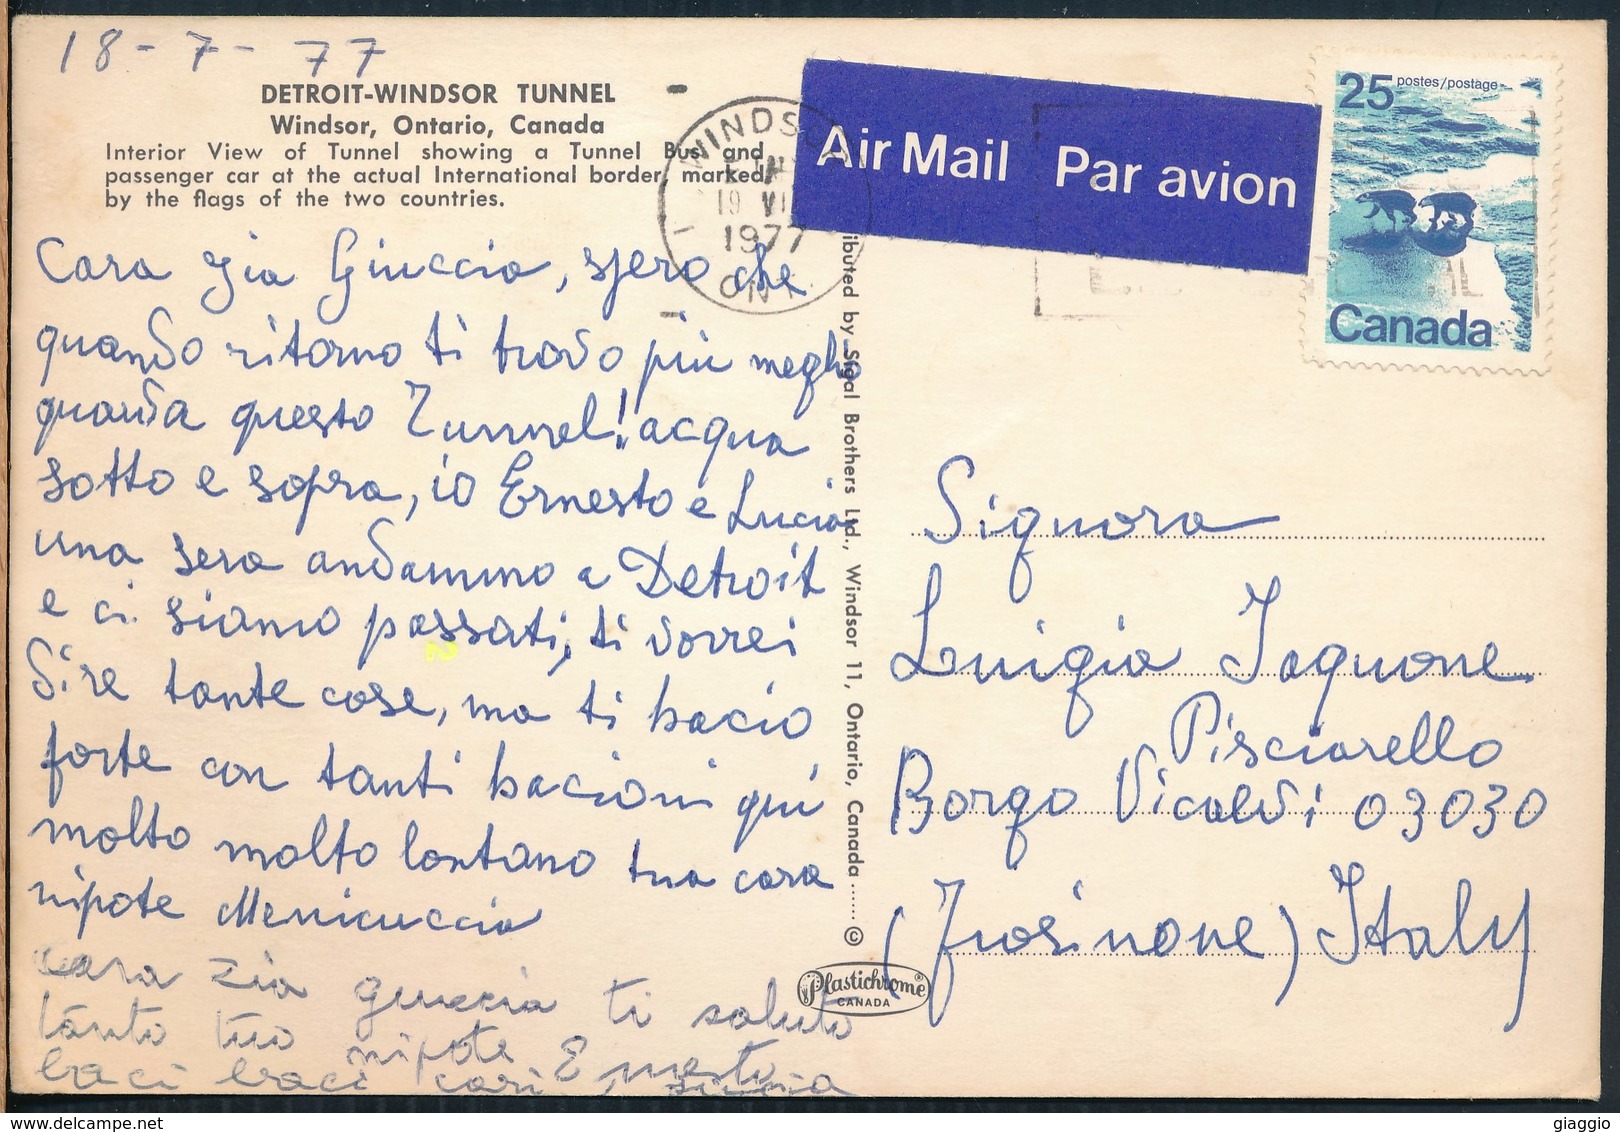 18-7-77
DETROIT-WINDSOR TUNNEL
Windsor, Ontario, Canada
Interior View of Tunnel showing a Tunnel Bus and
passenger car at the actual International border, marked
by the flags of the two countries.
Cara zia Giuccia, spero che
quando ritorno ti trovo più meglio
guarda questo Tunnel! acqua
sotto e sopra, io Ernesto e Lucia
una sera andammo a Detroit
e ci siamo passati, ti vorrei
dire tante cose, ma ti bacio
forte con tanti bacioni qui
molto molto lontano tua cara
nipote Menicuccia
cara zia giuccia ti saluto
tanto tuo nipote Ernesto
baci baci cari
2
WINDSOR
19 VII
1977
ONT.
Air Mail Par avion
25 postes/postage
Canada
ibuted by Sigal Brothers Ltd., Windsor 11, Ontario, Canada ...... ©
Plastichrome®
CANADA
Signora
Luigia Iaquone
Pisciarello
Borgo Vicalvi 03030
(Frosinone) Italy
giaggio
www.delcampe.net